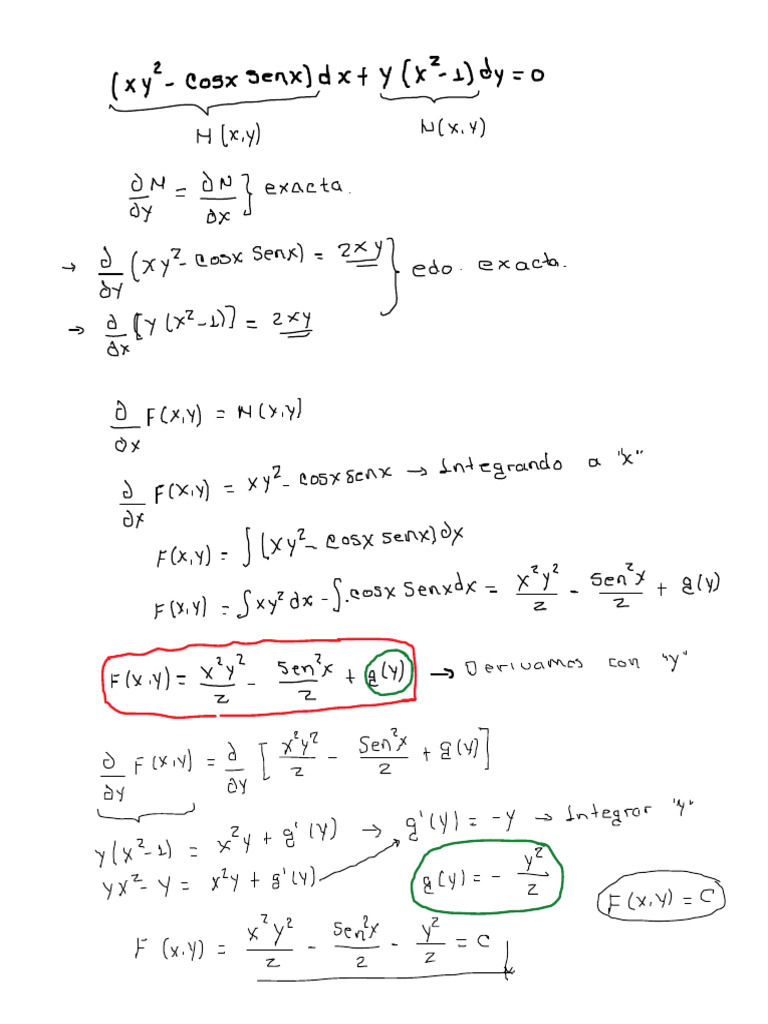 (xy² - cosx senx)dx + y(x²-1)dy = 0
M(x,y) N(x,y)
∂M/∂y = ∂N/∂x } exacta.
→ ∂/∂y (xy² - cosx senx) = 2xy } edo. exacta.
→ ∂/∂x [y(x²-1)] = 2xy
∂/∂x F(x,y) = M(x,y)
∂/∂x F(x,y) = xy² - cosx senx → Integrando a "x"
F(x,y) = ∫(xy² - cosx senx)dx
F(x,y) = ∫xy²dx - ∫.cosx senxdx = x²y²/2 - sen²x/2 + g(y)
F(x,y) = x²y²/2 - sen²x/2 + g(y) → Derivamos con "y"
∂/∂y F(x,y) = ∂/∂y [x²y²/2 - sen²x/2 + g(y)]
y(x²-1) = x²y + g'(y) → g'(y) = -y → Integrar "y"
yx² - y = x²y + g'(y) g(y) = - y²/2 F(x,y) = C
F(x,y) = x²y²/2 - sen²x/2 - y²/2 = C